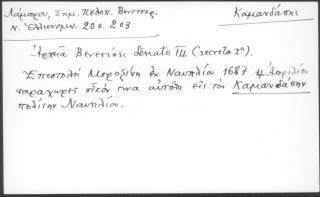 Λάμπρου, Σημ. Πελοπ. Βενετοκρ.
Καμανδάσης
Ν. Ἑλληνομν. 20 σ. 203
Ἀρχεῖα Βενετίας Senato III (secreta Iª).
Ἐπιστολὴ Μοροζίνη ἐκ Ναυπλίου 1687 4 Ἀπριλίου
παραχωρεῖ οἶκόν τινα αὐτόθι εἰς τὸν Καμανδάσην
πολίτην Ναυπλίου.